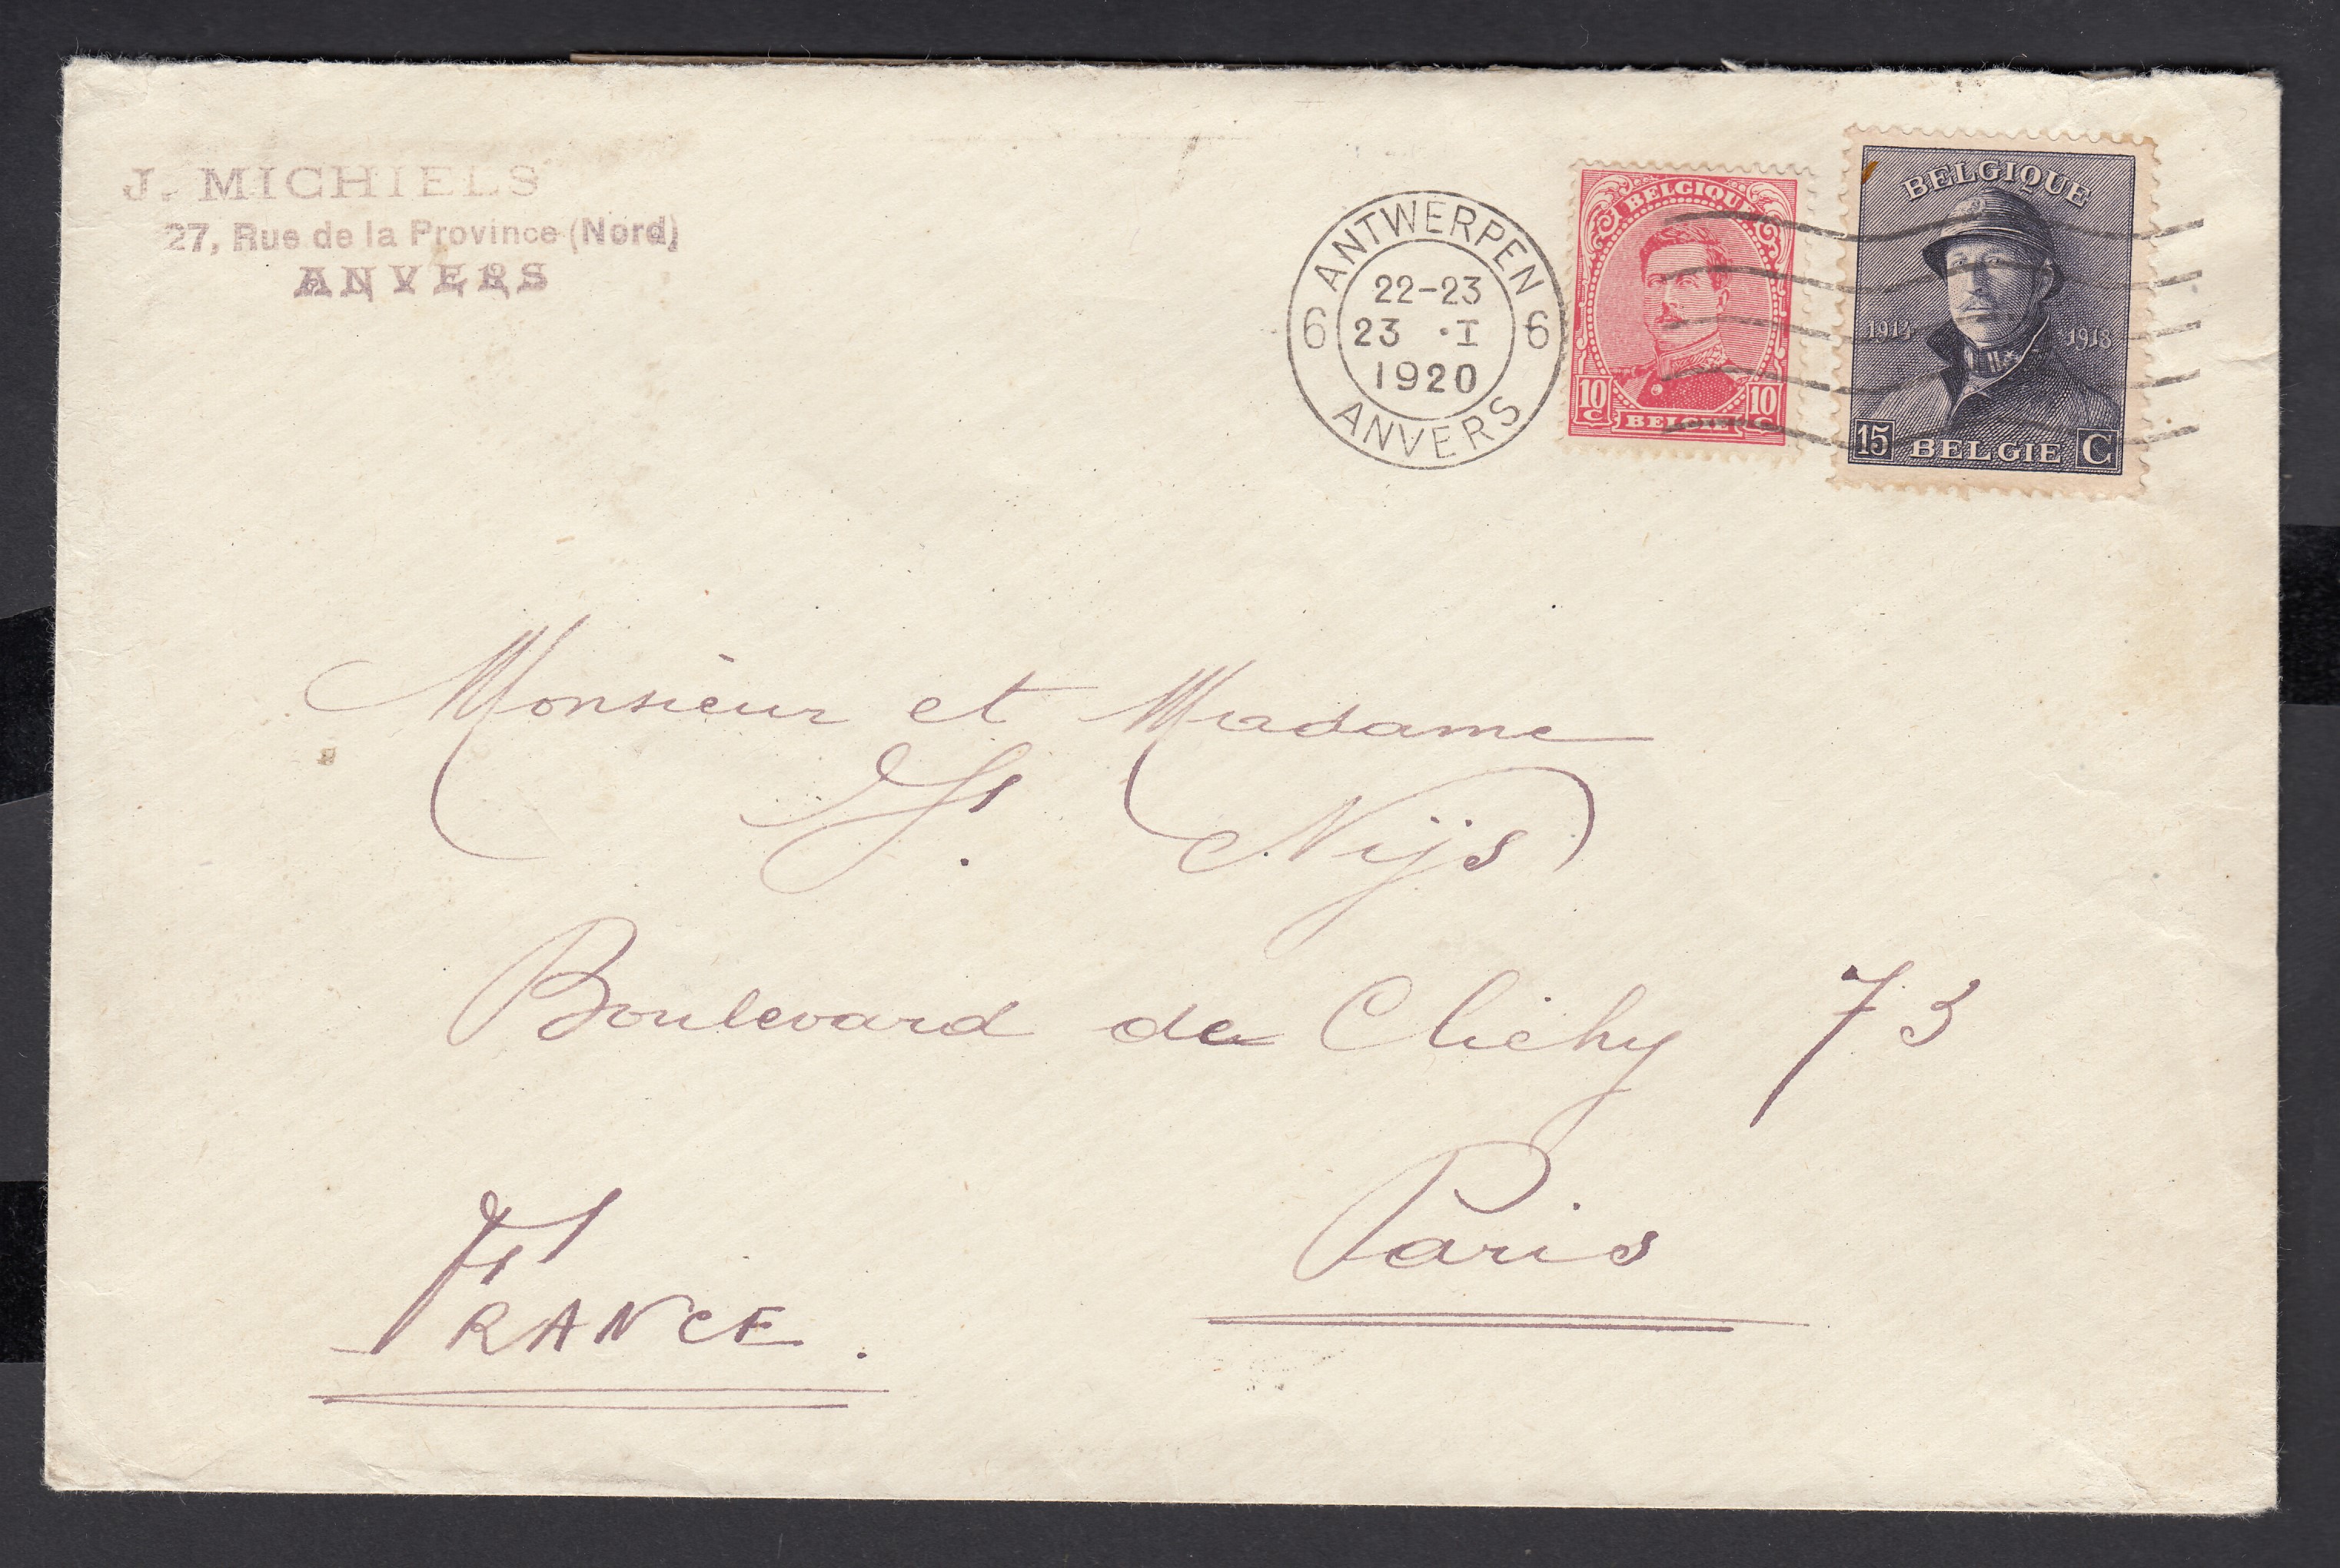 J. MICHIELS
27, Rue de la Province (Nord)
ANVERS
ANTWERPEN
22-23
6 23 ·I 6
1920
ANVERS
BELGIQUE
10 C 10 C
BELGIË
BELGIQUE
1914 1918
15 BELGIE C
Monsieur et Madame
Nijs
Boulevard de Clichy 73
Paris
FRANCE.